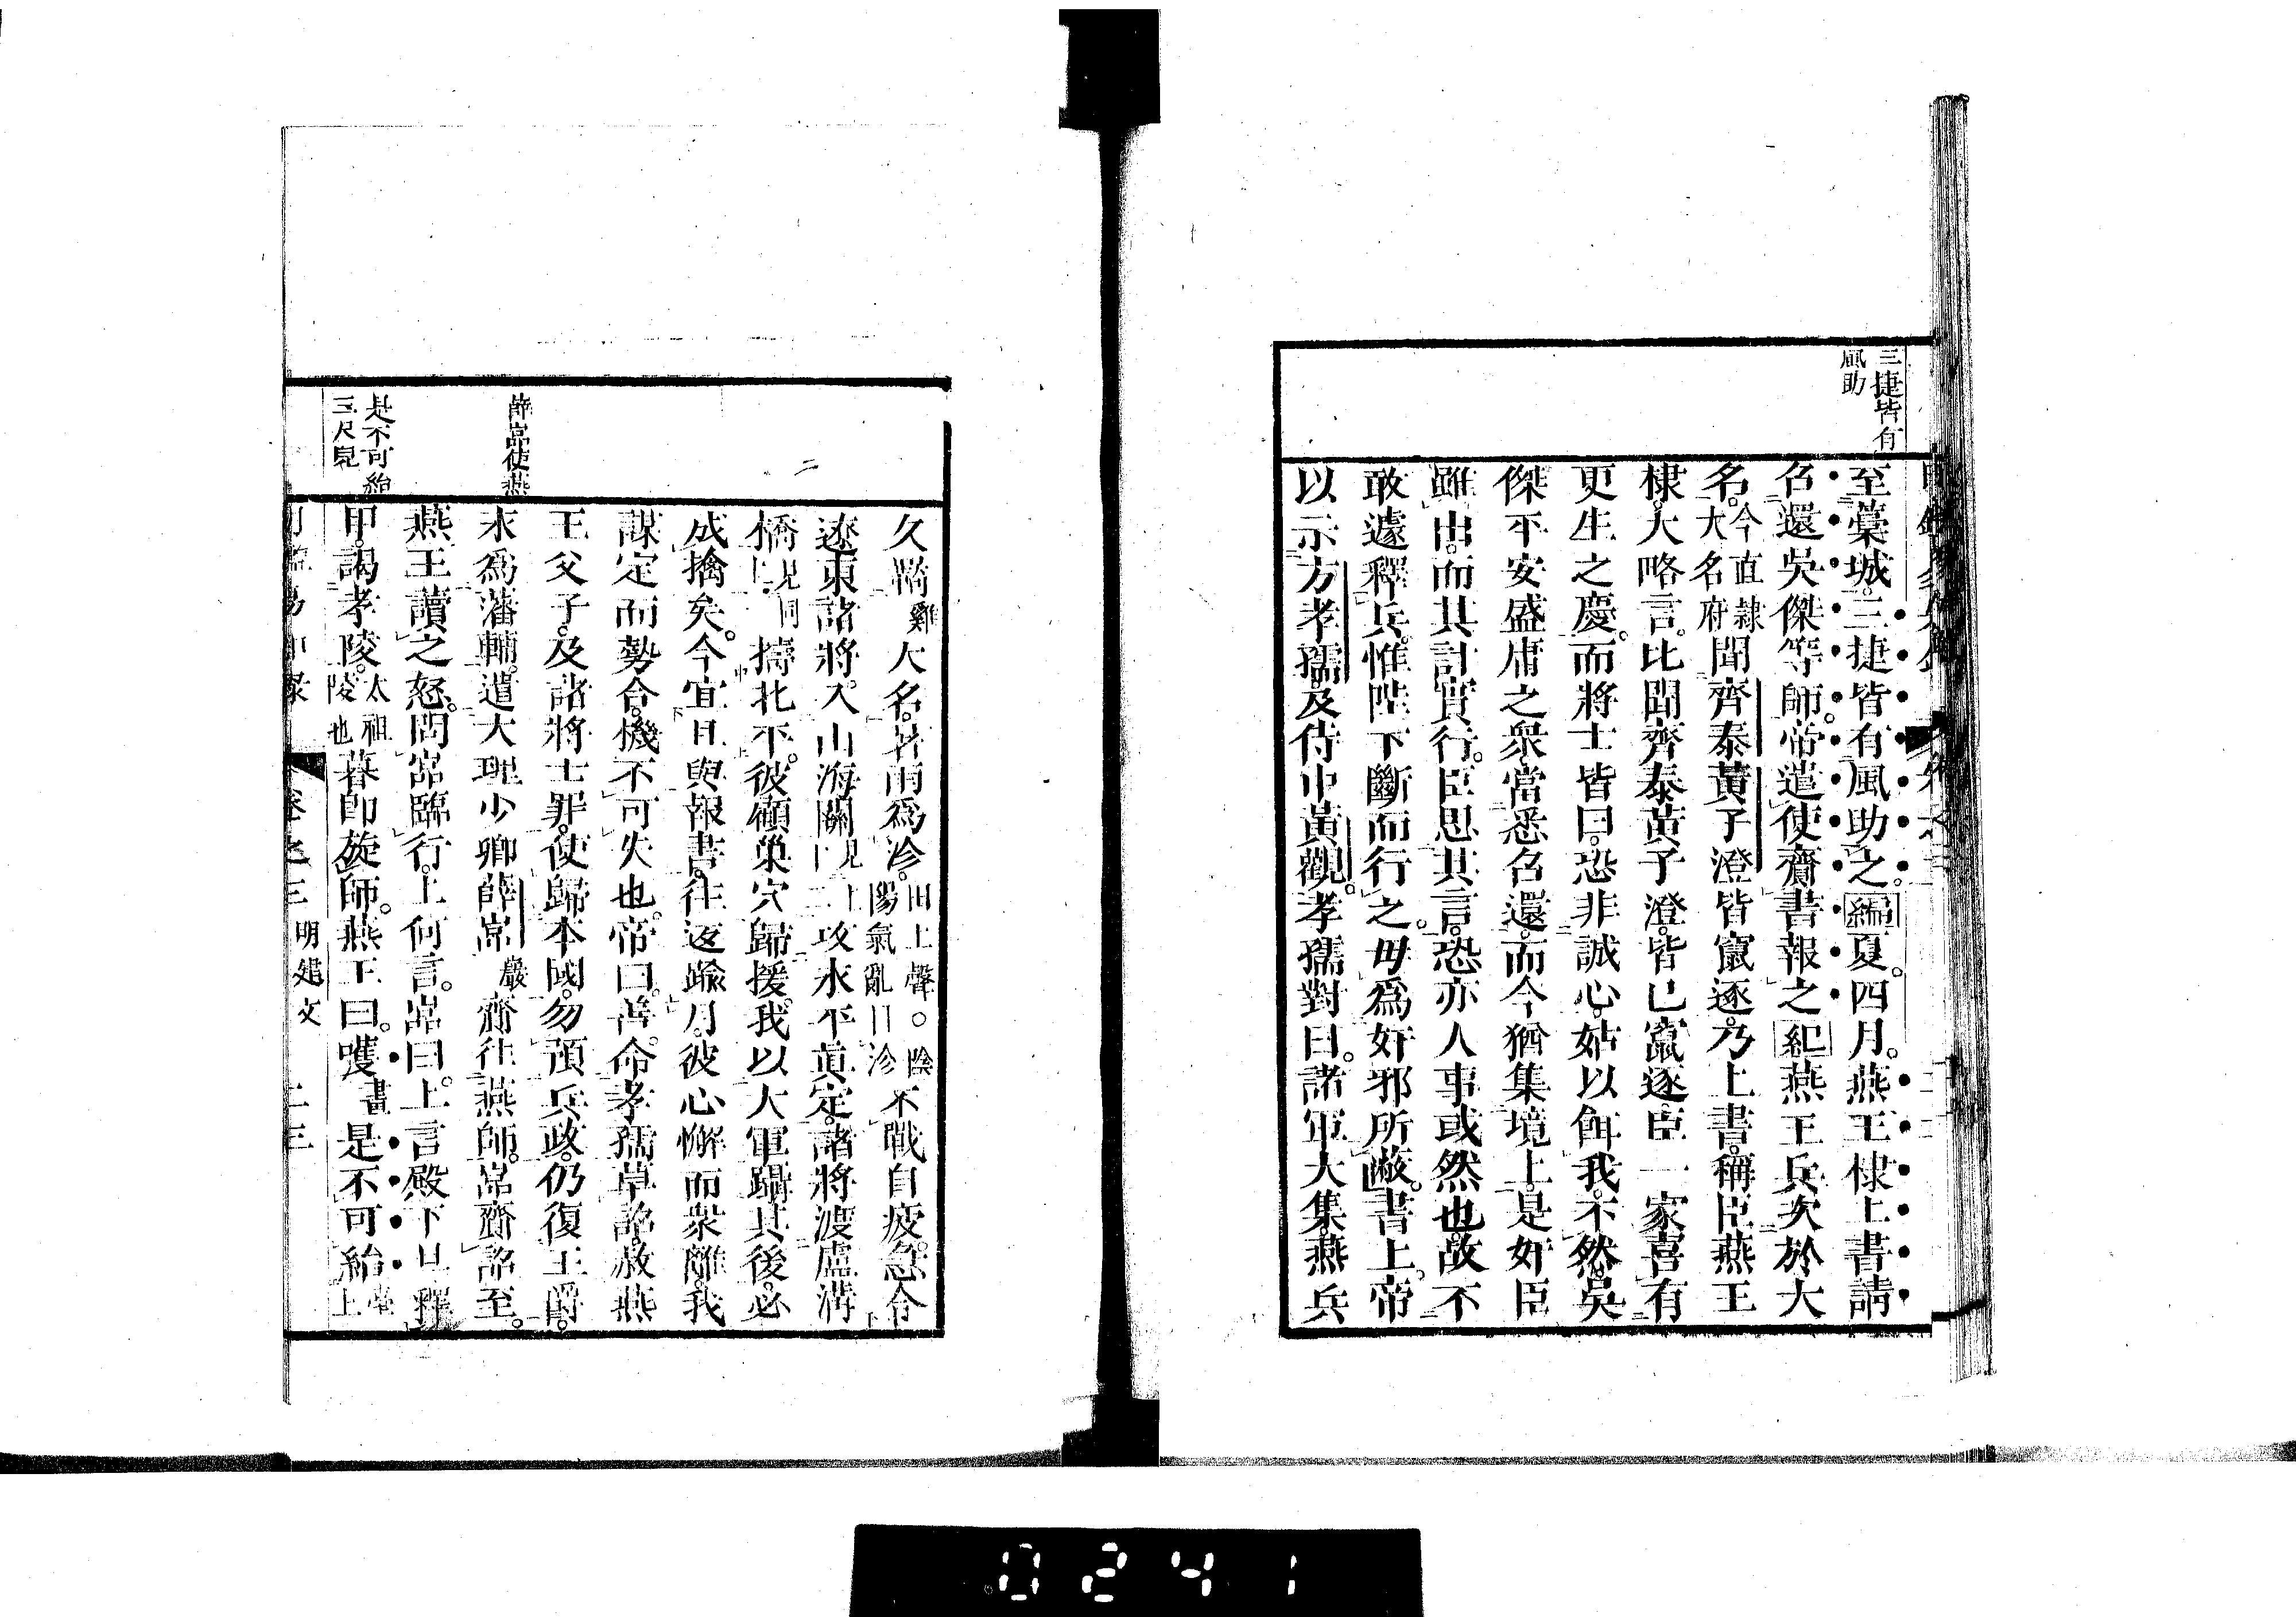 三捷皆有
風助
至藁城。三捷皆有風助之。編夏。四月。燕王棣上書請
名還吳傑等師。帝遣使齎書報之紀燕王兵次於大
名。今直隸大名府聞齊泰黃子澄皆竄逐。乃上書。稱臣燕王
棣。大略言。比聞齊泰黃子澄。皆已竄逐。臣一家喜有
更生之慶。而將士皆曰。恐非誠心。姑以餌我。不然。吳
傑平安盛庸之衆。當悉召還。而今猶集境上。是奸臣
雖出。而其計實行。臣思其言。恐亦人事或然也。故不
敢遽釋兵。惟陛下斷而行之。毋爲奸邪所蔽。書上。帝
以示方孝孺。及侍中黃觀。孝孺對曰。諸軍大集。燕兵
薛嵓使燕
是不可紿
三尺兒
久羇雞大名。暑雨爲沴。旧上聲。○陰陽氣亂曰沴不戰自疲。急令
遼東諸將。入山海關見上攻永平眞定。諸將渡盧溝
橋見同上擣北平。彼顧巢穴歸援。我以大軍躡其後。必
成擒矣。今宜且與報書。往返踰月。彼心懈而衆離。我
謀定而勢合。機不可失也。帝曰。善。命孝孺草詔。赦燕
王父子。及諸將士罪。使歸本國。勿預兵政。仍復王爵。
永爲藩輔。遣大理少卿薛嵓巖齎往燕師。嵓齎詔至。
燕王讀之怒。問嵓臨行。上何言。嵓曰。上言殿下旦釋
甲。謁孝陵。太祖陵也暮卽旋師。燕王曰。嚄畫是不可紿臺上
卷之三 明建文